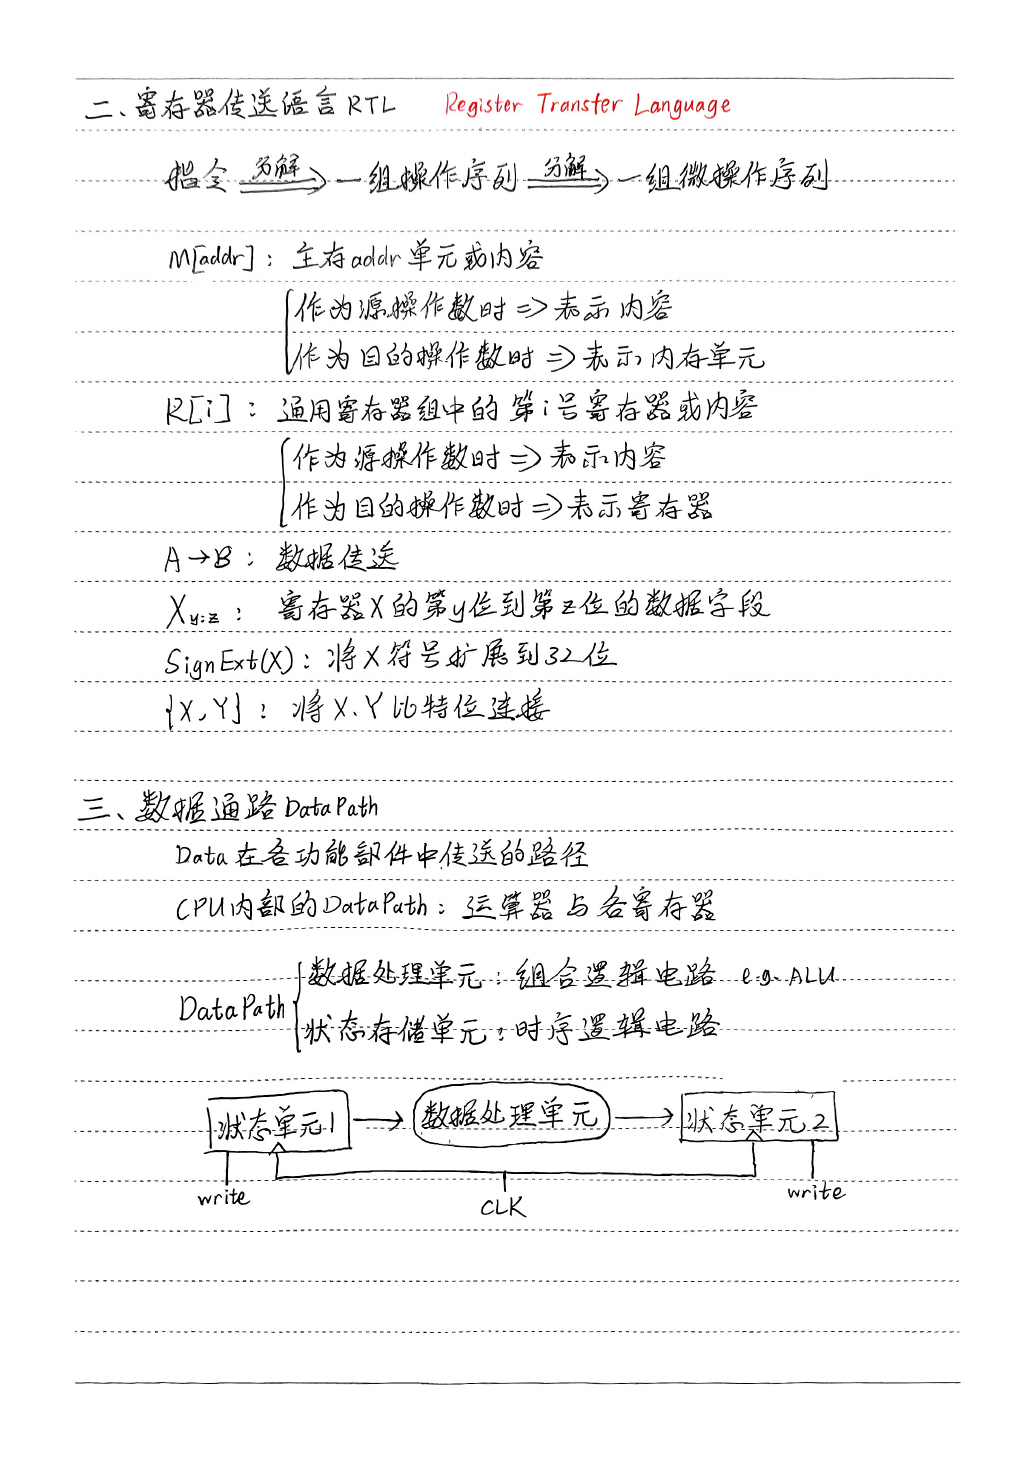 二、寄存器传送语言RTL Register Transfer Language
指令 分解⇒ 一组操作序列 分解⇒ 一组微操作序列
M[addr]：主存addr单元或内容
作为源操作数时⇒表示内容
作为目的操作数时⇒表示内存单元
R[i]：通用寄存器组中的第i号寄存器或内容
作为源操作数时⇒表示内容
作为目的操作数时⇒表示寄存器
A→B：数据传送
Xy:z：寄存器X的第y位到第z位的数据字段
SignExt(X)：将X符号扩展到32位
{X,Y}：将X、Y比特位连接
三、数据通路DataPath
Data在各功能部件中传送的路径
CPU内部的DataPath：运算器与各寄存器
数据处理单元：组合逻辑电路 e.g. ALU
DataPath
状态存储单元：时序逻辑电路
状态单元1 → 数据处理单元 → 状态单元2
write CLK write